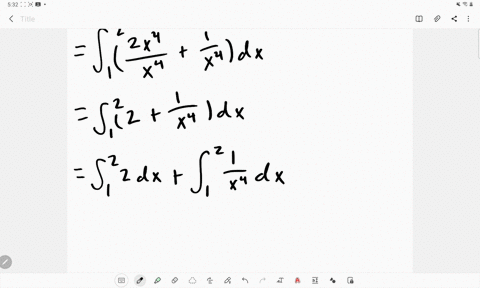 5:32
Title
= ∫₁² (2x⁴/x⁴ + 1/x⁴) dx
= ∫₁² (2 + 1/x⁴) dx
= ∫₁² 2 dx + ∫₁² 1/x⁴ dx